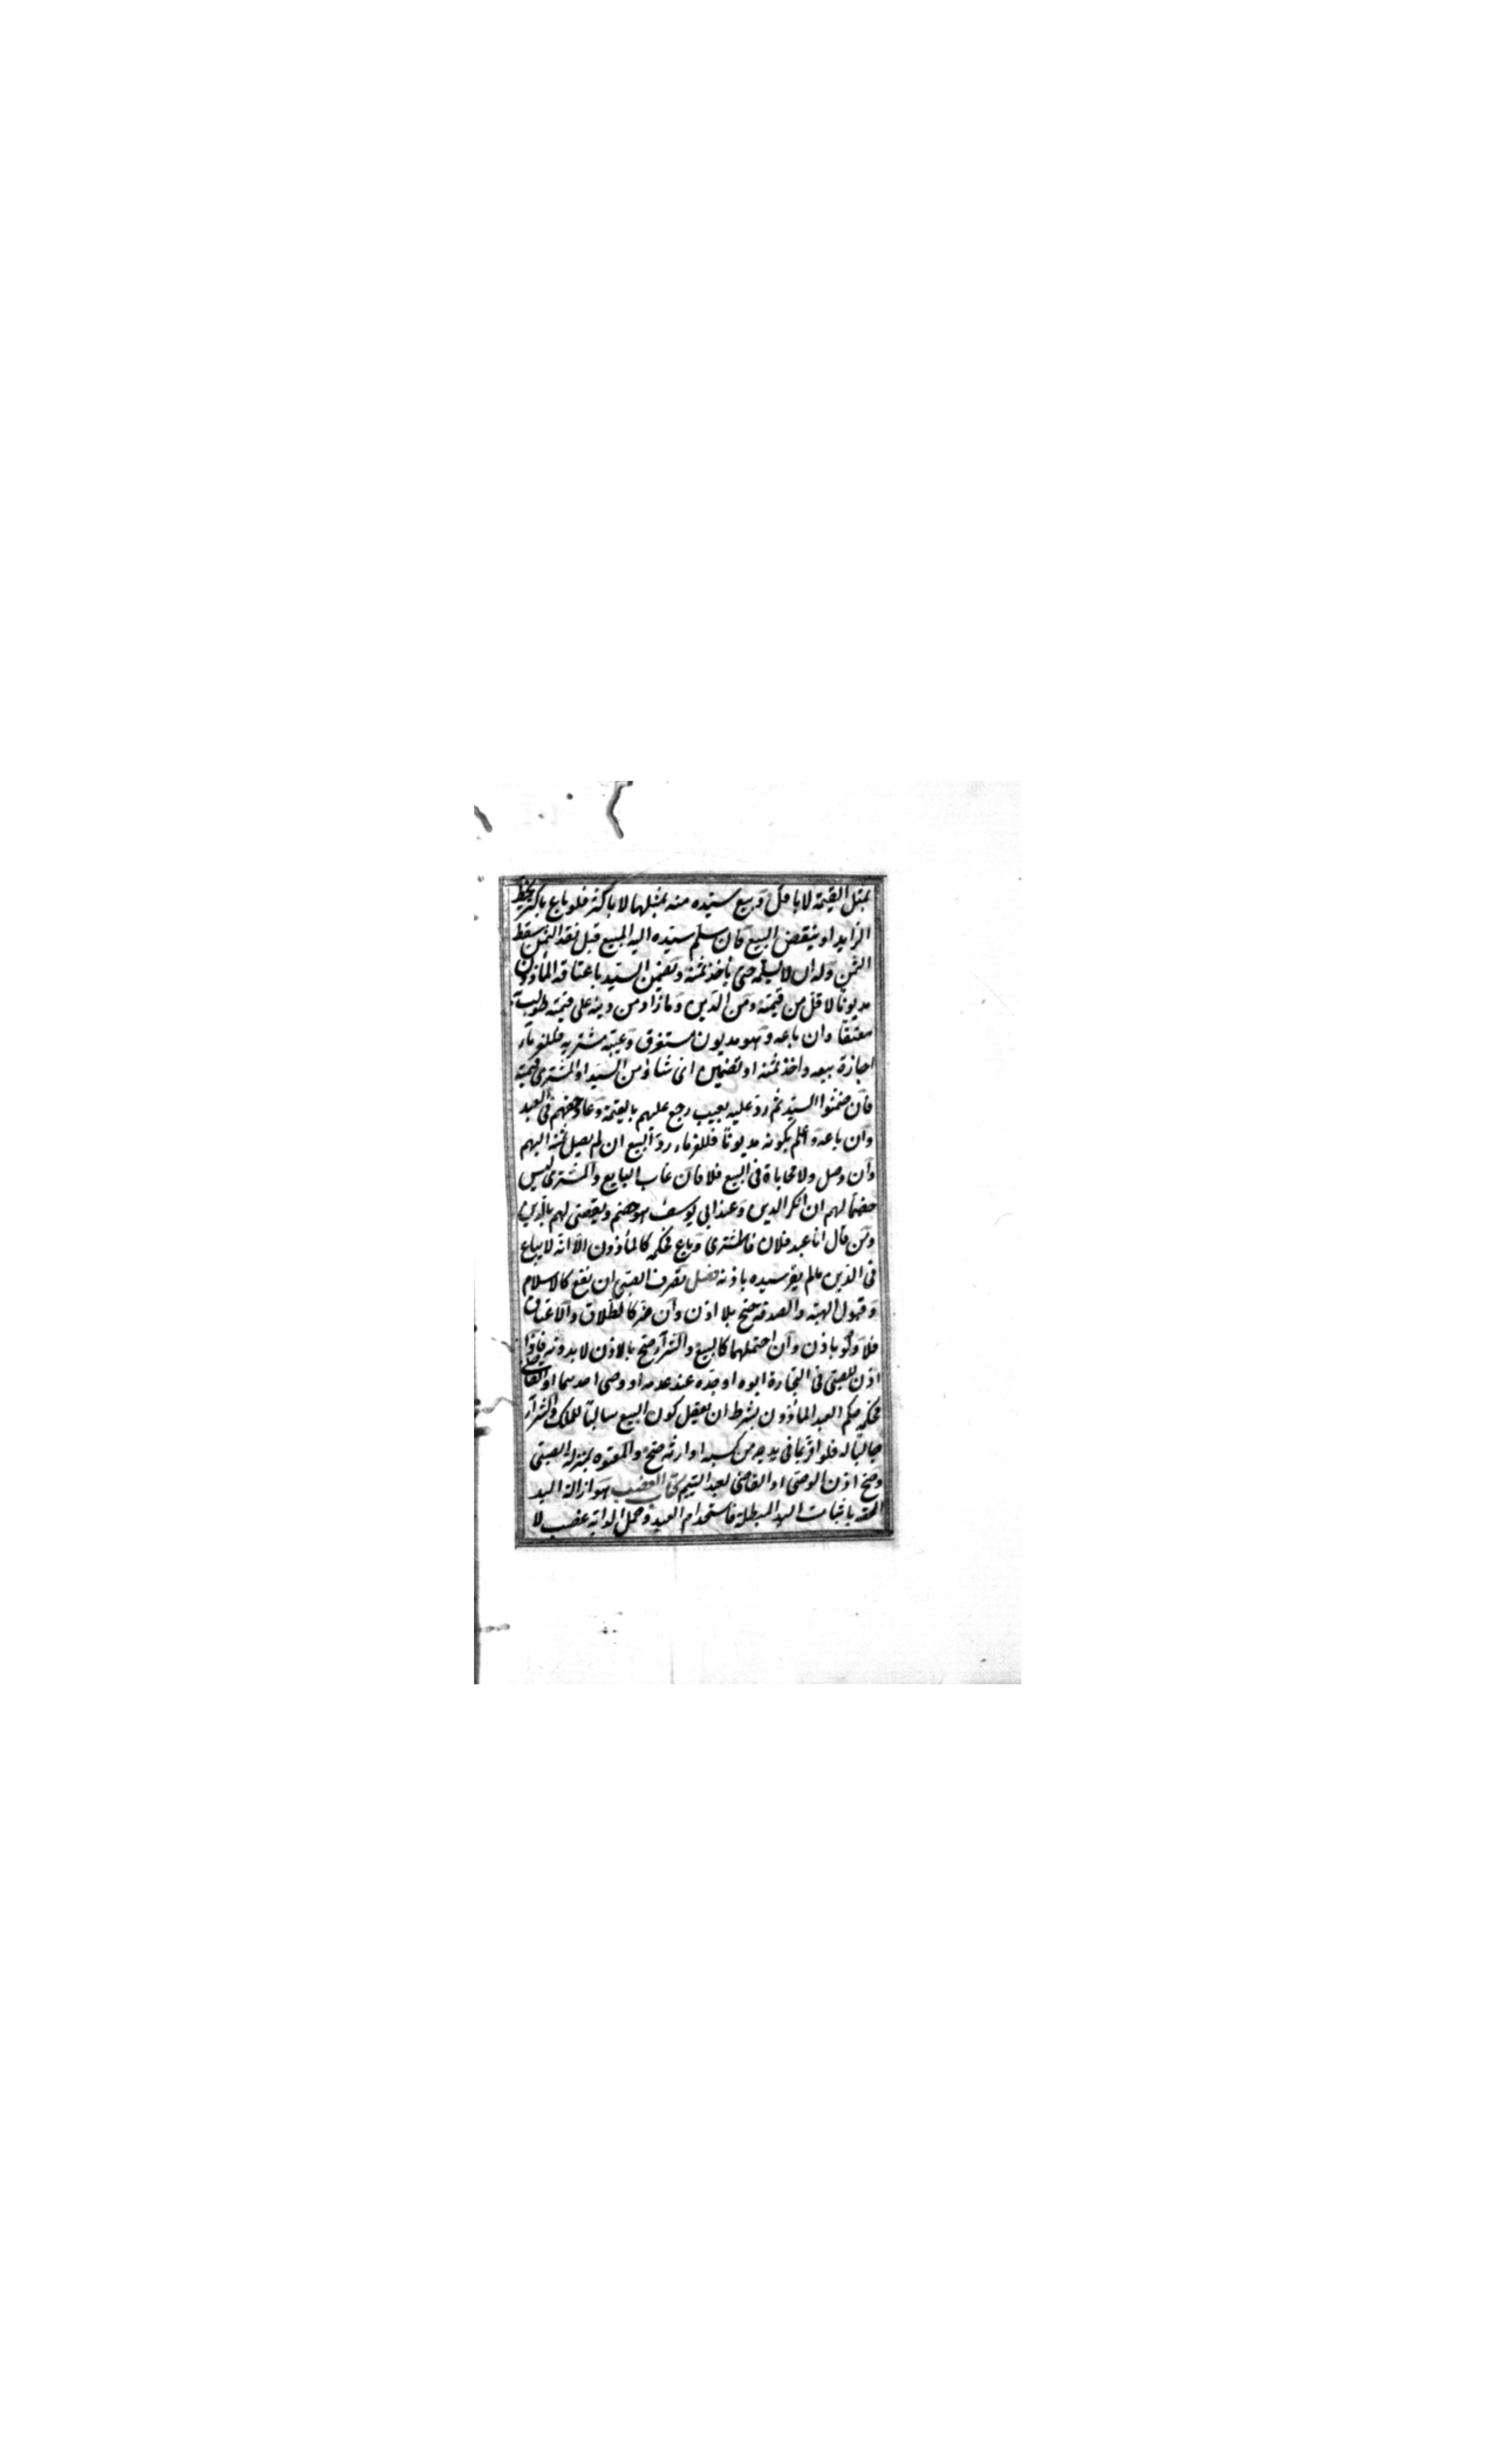 بمثل القيمة لا باقل وبيع سيده منه بمثلها لا باكثر فلو باع باكثر يحط
الزايد او ينقض البيع فان سلم سيده اليه المبيع قبل نقد الثمن سقط
الثمن وله ان لا يسلمه حتى يأخذ ثمنه ويضمن السيد باعتاقه المأذون
مديونا لاقل من قيمته ومن الدين وما زاد من دينه على قيمته طولب به
معتقا وان باعه وهو مديون مستغرق وغيبه مشتريه فللغرماء
اجازة بيعه واخذ ثمنه او تضمين اى شاؤا من السيد او المشترى قيمته
فان ضمنوا السيد ثم رد عليه بعيب رجع عليهم بالقيمة وعاد حقهم فى العبد
وان باعه واعلم بكونه مديونا فللغرماء رد البيع ان لم يصل ثمنه اليهم
وان وصل ولا محاباة فى البيع فلا فان غاب البايع والمشترى ليس
خصما لهم ان انكر الدين وعند ابى يوسف هو خصم ويقضى لهم بالدين
ومن قال انا عبد فلان فاشترى وباع فحكمه كالمأذون الا انه لا يباع
فى الدين مالم يقر سيده باذنه فصل تصرف الصبى ان نفع كالاسلام
وقبول الهبة والصدقة صح بلا اذن وان ضر كالطلاق والاعتاق
فلا ولو باذن وان احتملهما كالبيع والشرآء صح بالاذن لا بدونه فاذا
اذن للصبى فى التجارة ابوه او جده عند عدمه او وصى احدهما او القاضى
فحكمه حكم العبد المأذون بشرط ان يعقل كون البيع سالبا للملك والشرآء
جالبا له فلو اقر بما فى يده من كسبه او ارثه صح والمعتوه بمنزلة الصبى
وصح اذن الوصى او القاضى لعبد اليتيم كتاب الغصب هو ازالة اليد
المحقة باثبات اليد المبطلة فاستخدام العبد وحمل الدابة غصب لا